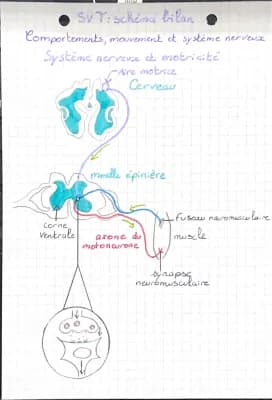 SVT: schéma bilan
Comportements, mouvement et système nerveux
Système nerveux et motricité
Aire motrice
Cerveau
moelle épinière
Corne
Ventrale
Fuseau neuromusculaire
muscle
axone du
motoneurone
synapse
neuromusculaire